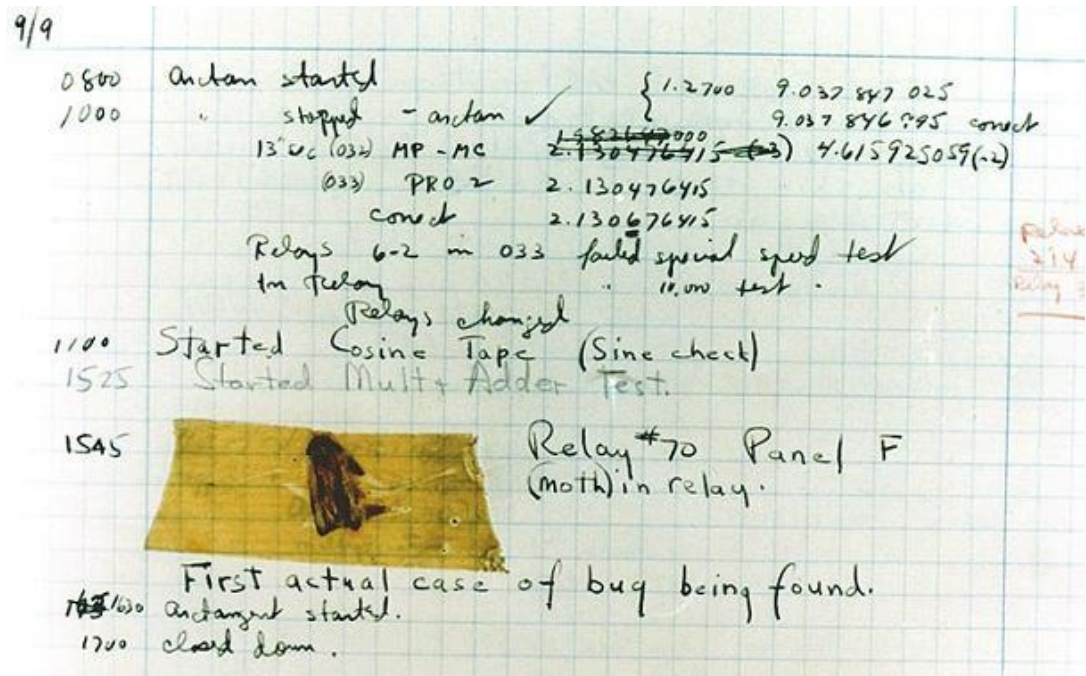 9/9
0800 antan started
1000 " stopped - antan ✓ { 1.2700 9.037 847 025
9.037 846 795 conect
13"uc (032) MP - MC 2.130476415 (-3) 4.615925059(-2)
(033) PRO 2 2.130476415
conect 2.130676415
Relays 6-2 in 033 failed special speed test
In Relay " 10,000 test .
Relays changed
1100 Started Cosine Tape (Sine check)
1525 Started Mult + Adder Test.
1545 Relay #70 Panel F
(moth) in relay.
First actual case of bug being found.
1630 antangent started.
1700 closed down .